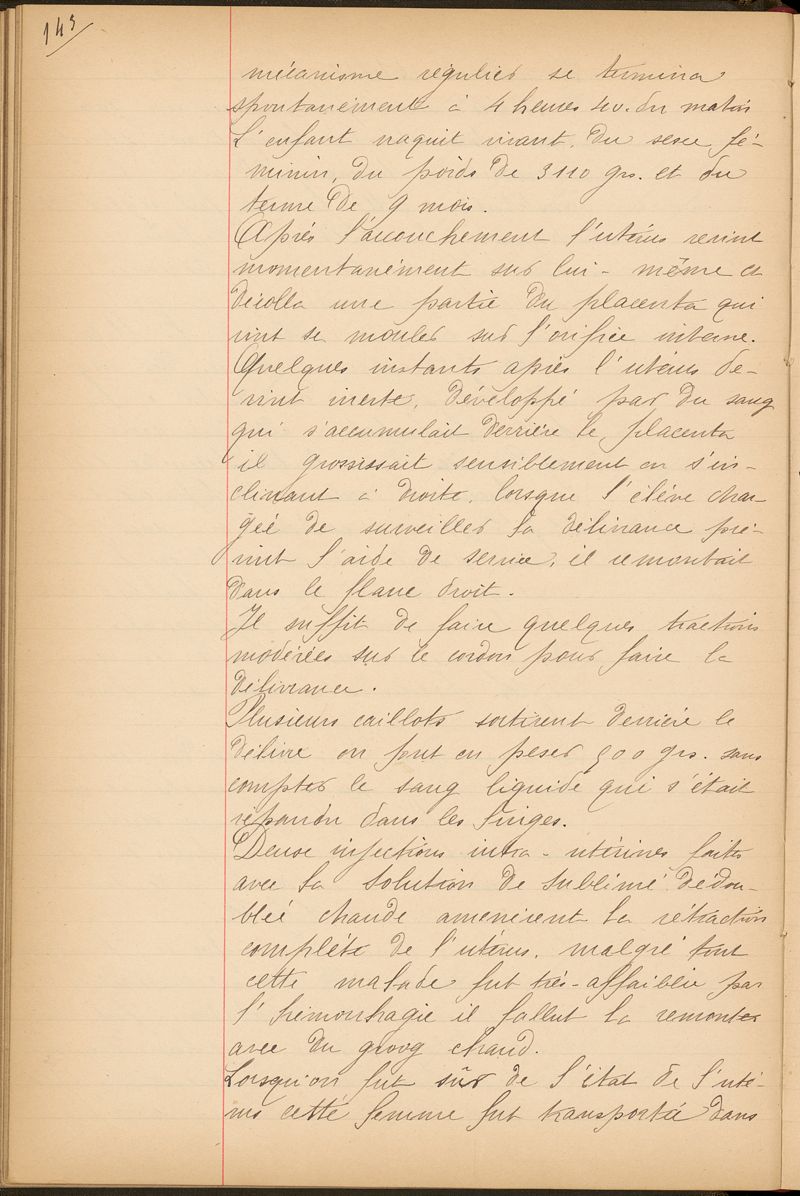 145
mécanisme régulier se termina
spontanément à 4 heures du matin
L'enfant naquit vivant, du sexe fé-
minin, du poids de 3110 grs. et du
terme de 9 mois.
Après l'accouchement l'utérus revint
momentanément sur lui-même et
décolla une partie du placenta qui
vint se mouler sur l'orifice interne.
Quelques instants après l'utérus de-
vint inerte, développé par du sang
qui s'accumulait derrière le placenta
il grossissait sensiblement en s'in-
clinant à droite, lorsque l'élève char-
gée de surveiller la délivrance pré-
vint l'aide de service, il remontait
dans le flanc droit.
Il suffit de faire quelques tractions
modérées sur le cordon pour faire la
délivrance.
Plusieurs caillots sortirent derrière le
délivre on put en peser 500 grs. sans
compter le sang liquide qui s'était
répandu dans les linges.
Deux injections intra-utérines faites
avec la solution de sublimé dédou-
blée chaude amenèrent la rétraction
complète de l'utérus, malgré tout
cette malade fut très-affaiblie par
l'hémorrhagie il fallut la remonter
avec du groog chaud.
Lorsqu'on fut sûr de l'état de l'uté-
rus cette femme fut transportée dans